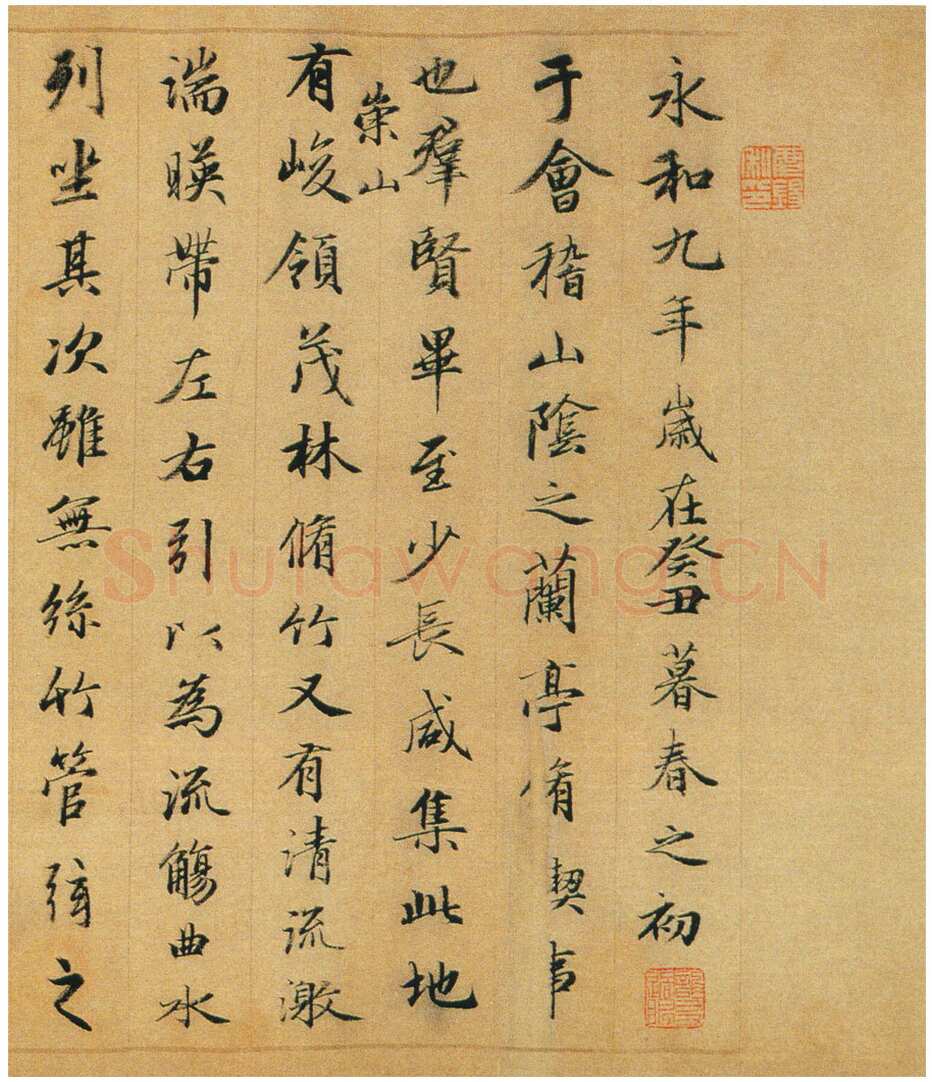 永和九年歲在癸丑暮春之初
于會稽山陰之蘭亭脩契事
也羣賢畢至少長咸集此地
崇山
有峻領茂林脩竹又有清流激
湍暎帶左右引以為流觴曲水
列坐其次雖無絲竹管弦之
Shufawang.CN